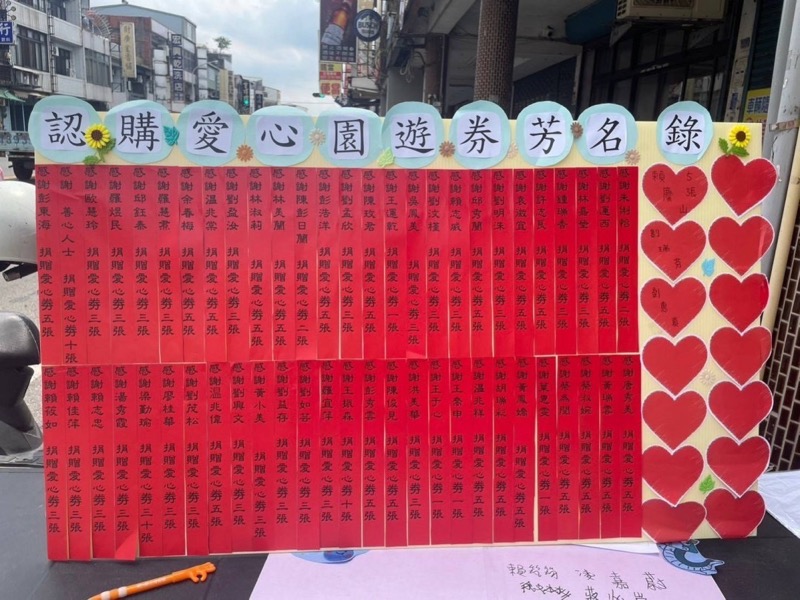 認購愛心園遊券芳名錄
感謝彭東海 捐贈愛心券五張
感謝 善心人士 捐贈愛心券十張
感謝歐慧玲 捐贈愛心券三張
感謝羅煜民 捐贈愛心券三張
感謝邱鈺泰 捐贈愛心券三張
感謝羅慧雲 捐贈愛心券三張
感謝余春梅 捐贈愛心券三張
感謝溫兆棠 捐贈愛心券三張
感謝劉盈汝 捐贈愛心券三張
感謝林淑莉 捐贈愛心券五張
感謝林美蘭 捐贈愛心券五張
感謝陳彭日蘭 捐贈愛心券二張
感謝彭浩洋 捐贈愛心券五張
感謝劉孟欣 捐贈愛心券三張
感謝陳玫君 捐贈愛心券五張
感謝王運乾 捐贈愛心券一張
感謝吳鳳美 捐贈愛心券三張
感謝劉文樑 捐贈愛心券三張
感謝賴志威 捐贈愛心券五張
感謝邱秀蘭 捐贈愛心券五張
感謝劉明洙 捐贈愛心券五張
感謝袁淑宜 捐贈愛心券五張
感謝許志民 捐贈愛心券五張
感謝鍾瑞香 捐贈愛心券五張
感謝林嘉瑩 捐贈愛心券三張
感謝劉運西 捐贈愛心券五張
感謝 捐贈愛心券二張
感謝賴筱如 捐贈愛心券三張
感謝賴佳萍 捐贈愛心券三張
感謝賴志忠 捐贈愛心券三張
感謝湯秀霞 捐贈愛心券三張
感謝梁勤瑜 捐贈愛心券三十張
感謝廖桂華 捐贈愛心券三張
感謝劉茂松 捐贈愛心券五張
感謝溫兆偉 捐贈愛心券五張
感謝劉興文 捐贈愛心券三張
感謝黃小美 捐贈愛心券三張
感謝劉益存 捐贈愛心券三張
感謝劉如芸 捐贈愛心券三張
感謝羅宜萍 捐贈愛心券三張
感謝 捐贈愛心券十張
感謝彭秀雲 捐贈愛心券三張
感謝陳俊見 捐贈愛心券五張
感謝吳美華 捐贈愛心券三張
感謝王于心 捐贈愛心券一張
感謝王秦申 捐贈愛心券一張
感謝溫兆祥 捐贈愛心券五張
感謝胡瑞紅 捐贈愛心券五張
感謝黃鳳嬌 捐贈愛心券五張
感謝葉惠雯 捐贈愛心券一張
感謝 捐贈愛心券五張
感謝蔡淑婉 捐贈愛心券五張
感謝黃瑞雲 捐贈愛心券五張
感謝詹秀美 捐贈愛心券五張
嘉蔚